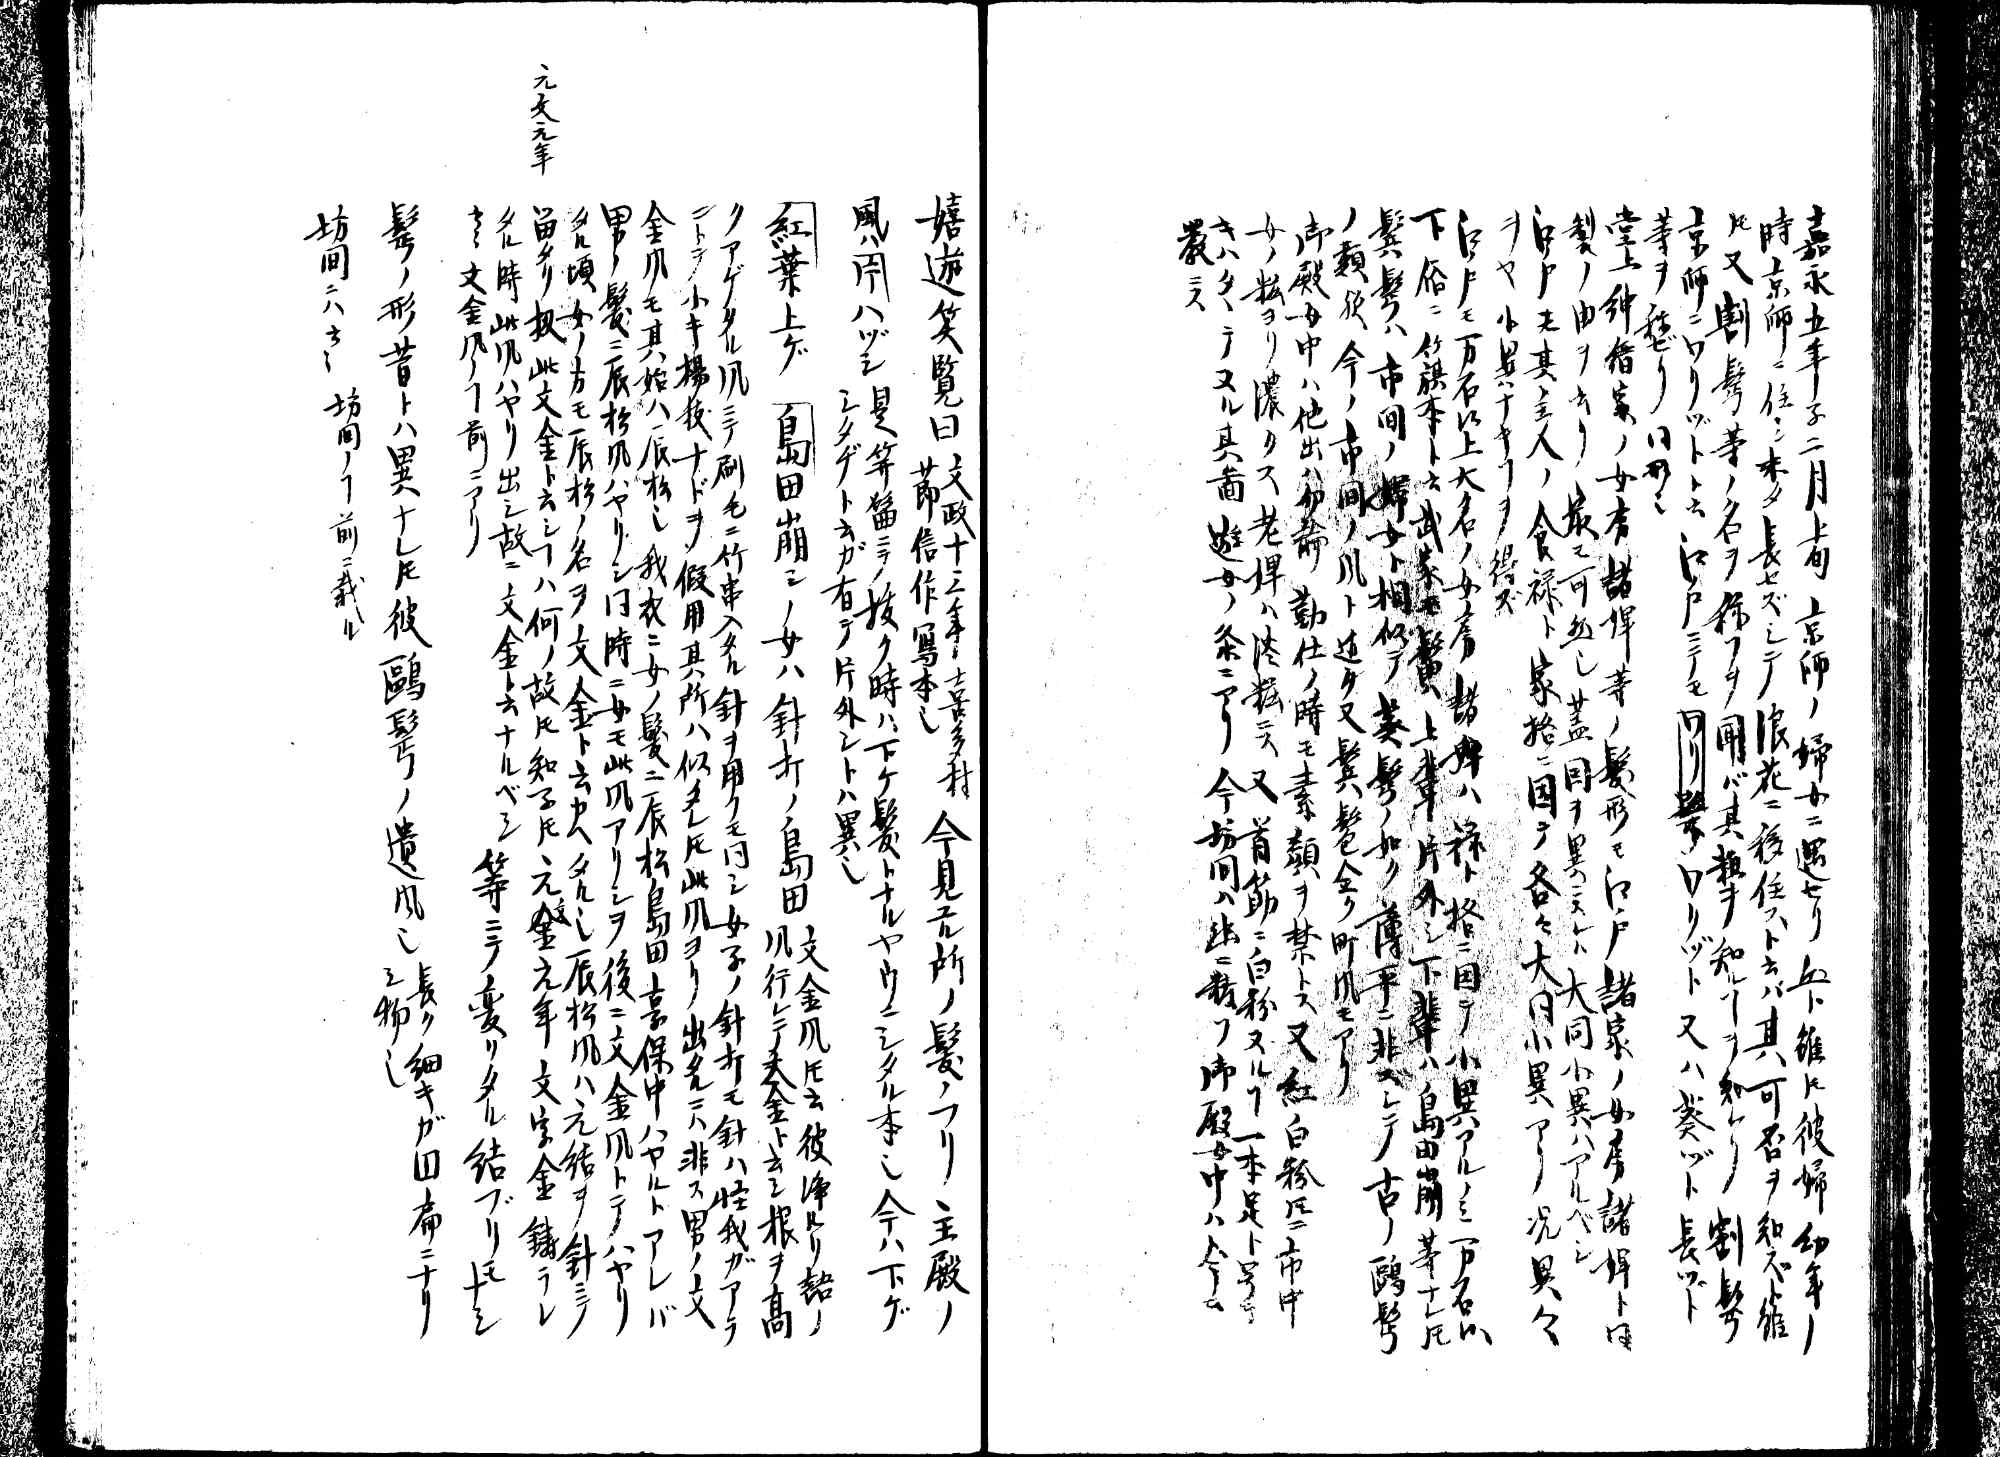 嘉永五年子二月上旬京師ノ婦女ニ遇セリ公卜雖氏彼婦幼年ノ
時京師ニ住ミ未ダ長セズシテ浪花ニ移住スト云バ其可否ヲ知ズト雖
氏又割髷等ノ名ヲ称フヲ聞バ其類ヲ知ルヿヲ知レリ割髷
京師ニワリヅトト云江戸ニテモワリ髷ワリヅト又ハ葵ヅト長ヅト
等ヲ称セリ同形也
堂上紳縉家ノ女房諸婢等ノ髪形モ江戸諸家ノ女房諸婢ト同
製ノ由ヲ云リ最モ可然シ蓋国ヲ異ニスレバ大同小異ハアルベシ
江戸モ其主人ノ食禄ト家格ニ因テ各々大同小異アリ況異々
ヲヤ小異ハナキヿヲ得ズ
江戸モ一万石以上大名ノ女房諸婢ハ禄ト格ニ因テ小異アルノミ一万石以
下俗ニ旗本ト云武家モ鬢上輩片外シ下輩ハ島田崩等ナレ氏
鬢髷ハ市間ノ婦女ト相似テ葵髷ノ如ク薄平ニ非ズシテ古ノ鴎髷
ノ類然今ノ市間ノ風ト近ク又鬢髱全ク町風モアリ
御殿女中ハ他出ハ勿論勤仕ノ時モ素顔ヲ禁トス又紅白粉氏ニ市中
女ノ粧ヨリ濃クス老婢ハ淡粧ニス又首筋ニ白粉ヌルヿ一本足ト号テ
キハタヽテヌル其図遊女ノ条ニアリ今坊間ハ
御殿女中ハ今モ
嚴ニス
嬉遊笑覧曰文政十三年喜多村節信作写本也今見ル所ノ髪ノフリ主殿ノ
風ハ片ハヅシ是笄髷ニテ抜ク時ハ下ケ髪トナルヤウニシタル本也今ハ下ゲ
シタヂト云ガ有テ片外シトハ異也
紅葉上ゲ島田崩シノ女ハ針打ノ島田文金風氏云彼浄ルリ語ノ
風行レテ文金ト云シ根ヲ高
クアゲタル風ニテ刷毛ニ竹串入タル針ヲ用ヒシモ同シ女子ノ針打モ針ハ怪我ガアラ
ニトテ小キ楊枝ナドヲ假用其所ハ似タレ氏此風ヨリ出タルニハ非ス男ノ文
金風モ其始ハ辰松也我衣ニ女ノ髪ニ辰松島田享保中ハヤルトアレバ
男ノ髪ニ辰松風ハヤリシ同時ニ女モ此風アリシヲ後ニ文金風トテハヤリ
タル頃女ノ方モ辰松ノ名ヲ文金ト云カヘタル也辰松風ハ元結ヲ針ニテ
留タリ扨此文金ト云シヿハ何ノ故氏知ラ子氏元文元年文字金鋳ラレ
タル時此風ハヤリ出シ故ニ文金ト云ナルベシ等ニテノ変リタル結ブリモナシ
云々文金風ノヿ前ニアリ
元文元年
髷ノ形昔トハ異ナレ氏彼鴎髷ノ遺風也長ク細キガ円扁ニナリ
シ物也
坊間ニハ云々坊間ノヿ前ニ載ル